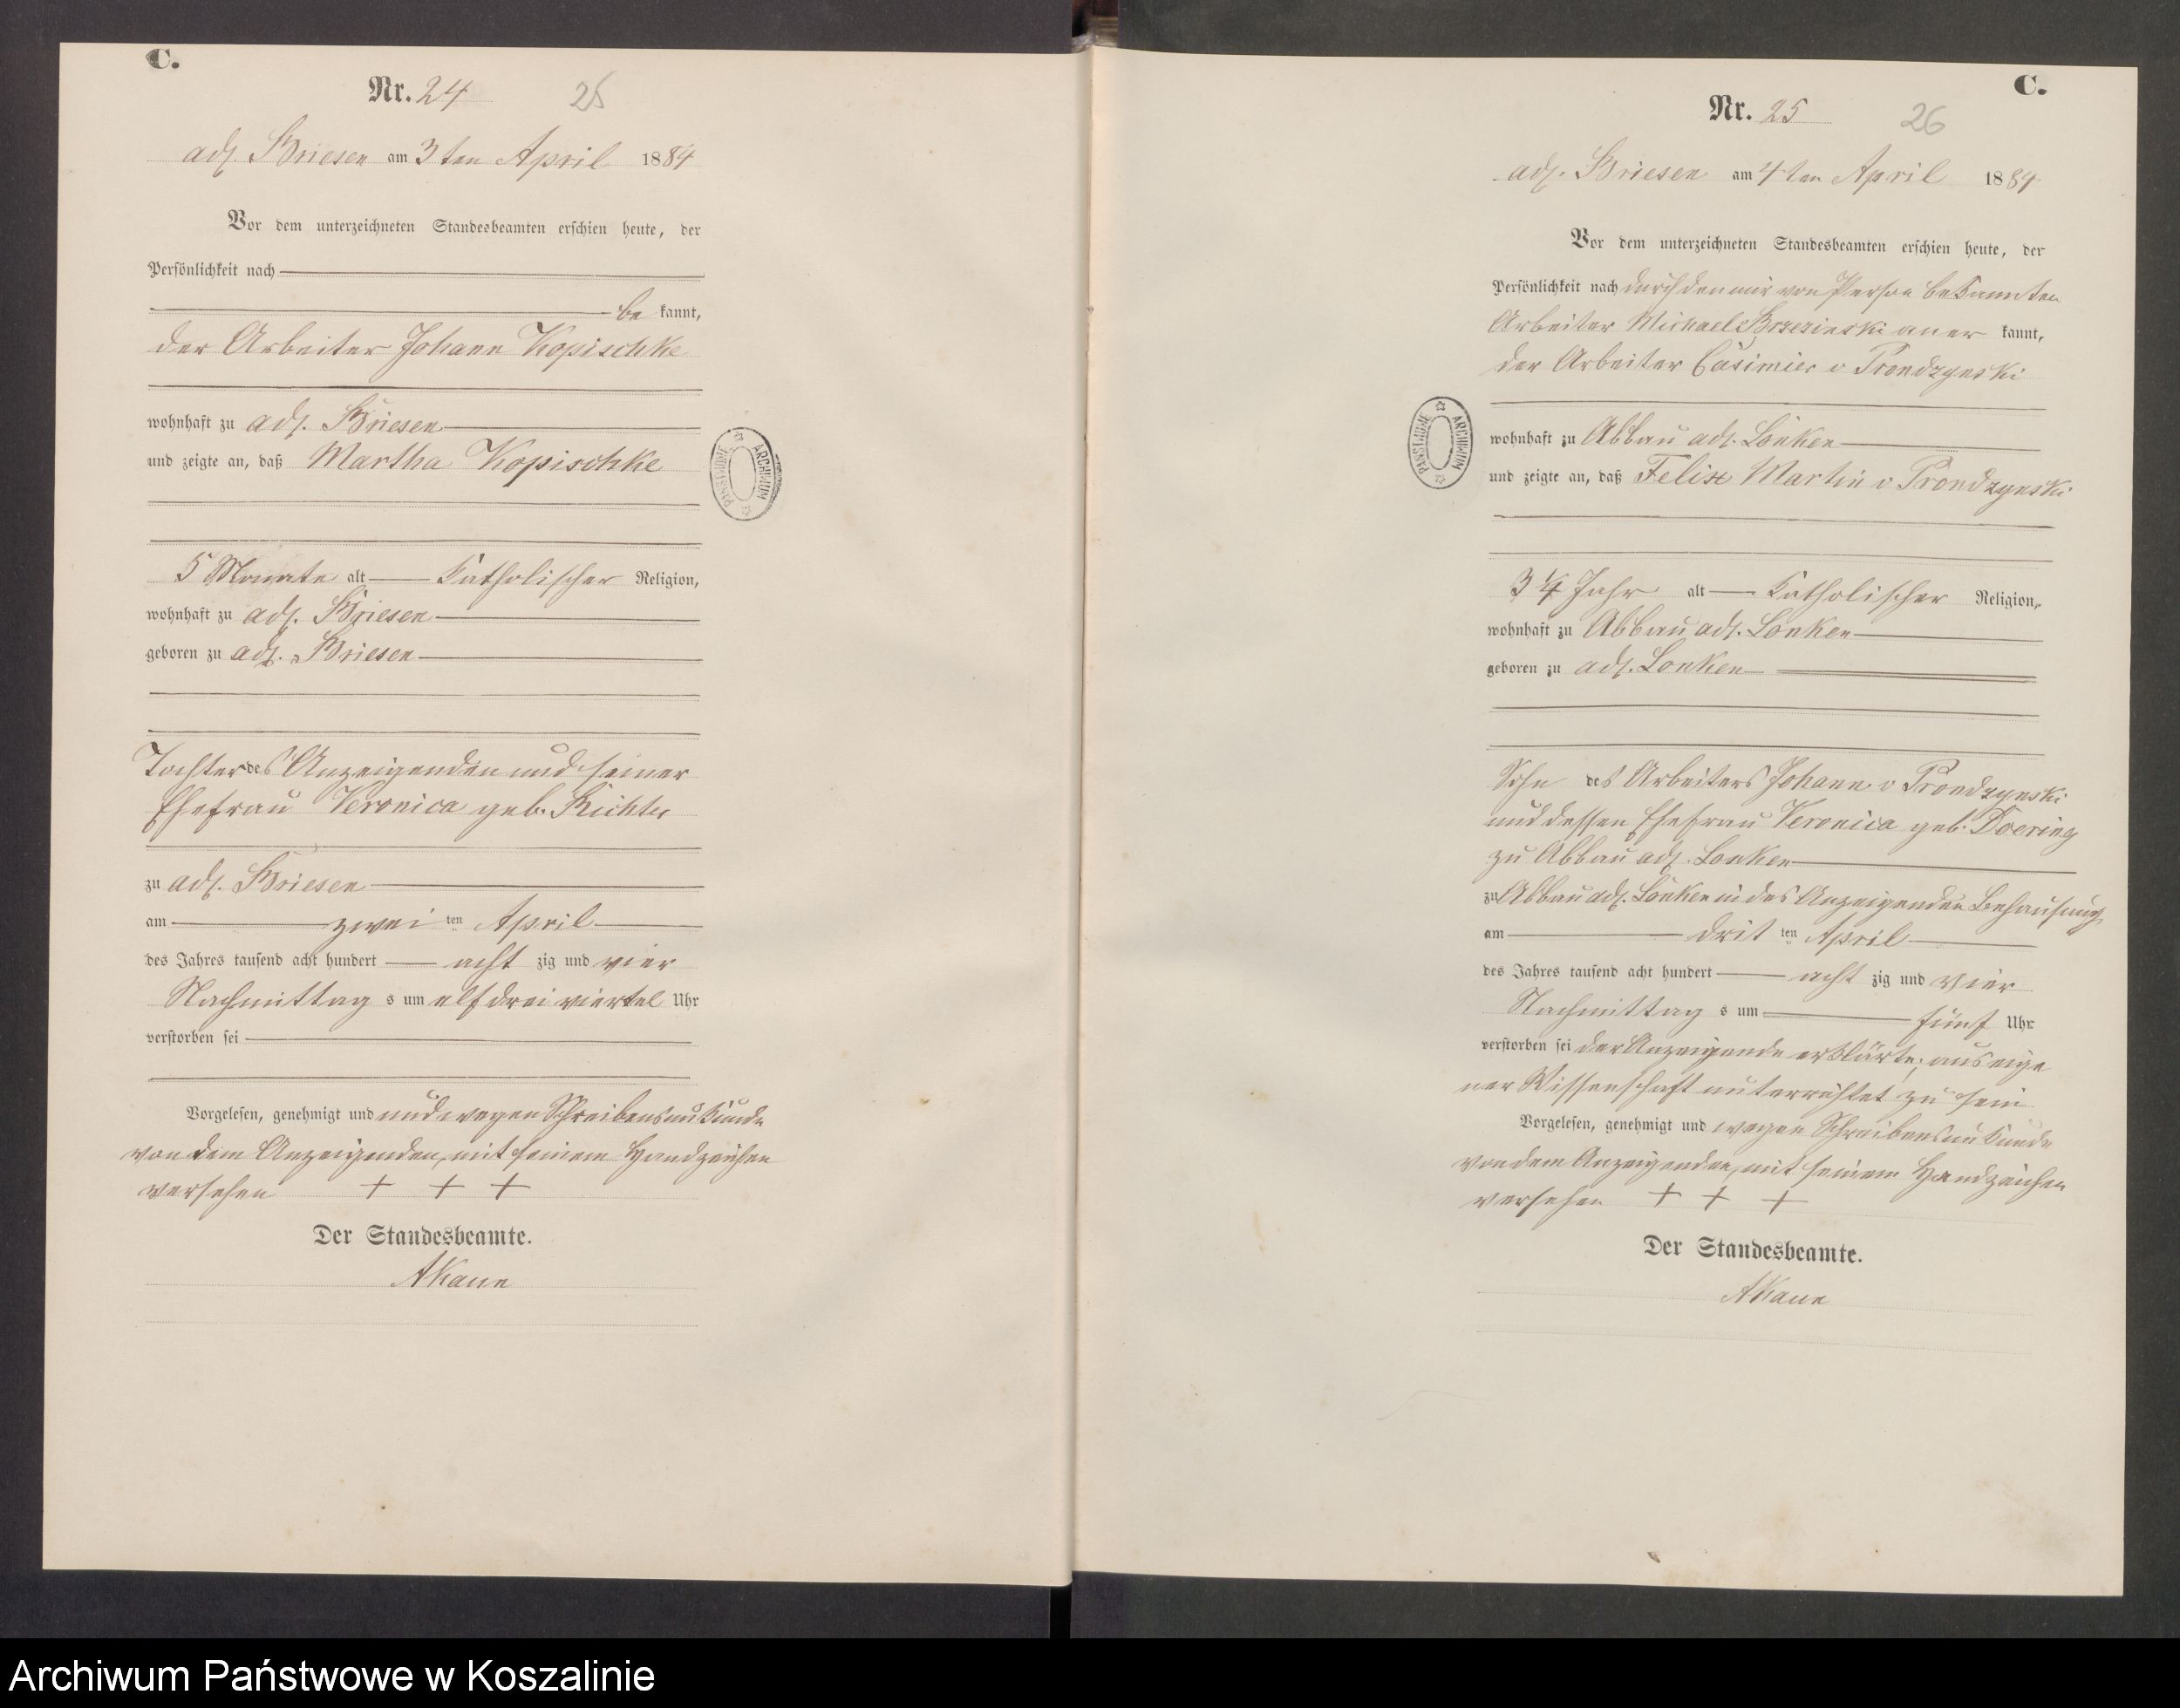 C.
Nr. 24 25
adl. Briesen am 3ten April 1884
Vor dem unterzeichneten Standesbeamten erschien heute, der
Persönlichkeit nach
be kannt,
der Arbeiter Johann Kopischke
wohnhaft zu adl. Briesen
und zeigte an, daß Martha Kopischke
5 Monate alt Katholischer Religion,
wohnhaft zu adl. Briesen
geboren zu adl. Briesen
Tochter des Anzeigenden und seiner
Ehefrau Veronica geb. Richter
zu adl. Briesen
am zwei ten April
des Jahres tausend acht hundert acht zig und vier
Nachmittag s um elf drei viertel Uhr
verstorben sei
Vorgelesen, genehmigt und und wegen Schreibensunkunde
von dem Anzeigenden, mit seinem Handzeichen
versehen + + +
Der Standesbeamte.
AKaun
ARCHIWUM PAŃSTWOWE
C.
Nr. 25 26
adl. Briesen am 4ten April 1884
Vor dem unterzeichneten Standesbeamten erschien heute, der
Persönlichkeit nach durch den mir von Person bekannten
Arbeiter Michael Brzezinski aner kannt,
der Arbeiter Casimier v Prondzynski
wohnhaft zu Abbau adl. Lonken
und zeigte an, daß Felix Martin v Prondzynski
3 1/4 Jahr alt Katholischer Religion,
wohnhaft zu Abbau adl. Lonken
geboren zu adl. Lonken
Sohn des Arbeiters Johann v Prondzynski
und dessen Ehefrau Veronica geb. Doering
zu Abbau adl. Lonken
zu Abbau adl. Lonken in des Anzeigenden Behausung
am drit ten April
des Jahres tausend acht hundert acht zig und vier
Nachmittag s um fünf Uhr
verstorben sei der Anzeigende erklärte, aus eige
ner Wissenschaft unterrichtet zu sein
Vorgelesen, genehmigt und wegen Schreibensunkunde
von dem Anzeigenden, mit seinem Handzeichen
versehen + + +
Der Standesbeamte.
AKaun
ARCHIWUM PAŃSTWOWE
Archiwum Państwowe w Koszalinie